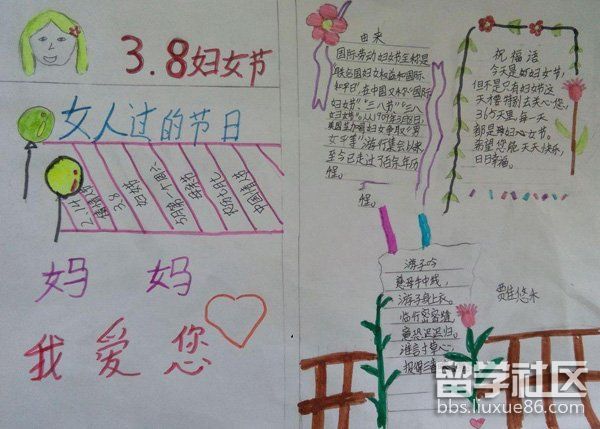 3.8妇女节
女人过的节日
2.14
情人节
3.8
妇女节
5月第二个周日
母亲节
农历七月七
中国情人节
妈 妈
我 爱 您
由来
国际劳动妇女节全称是
联合国妇女权益和国际
和平日"在中国又称"国际
妇女节""三八节""三八
妇女节"。从1909年3月8日,
美国芝加哥妇女争取"男
女平等"游行集会以来,
至今已走过了百年历
程。
祝福语
今天是妇女节,
但不是只有妇女节这
天才特别去关心您,
365天里,每一天
都是
希望您能天天快乐,
日日幸福。
游子吟
慈母手中线,
游子身上衣。
临行密密缝,
意恐迟迟归。
谁言寸草心,
报得三春晖。
留学社区
bbs.liuxue86.com